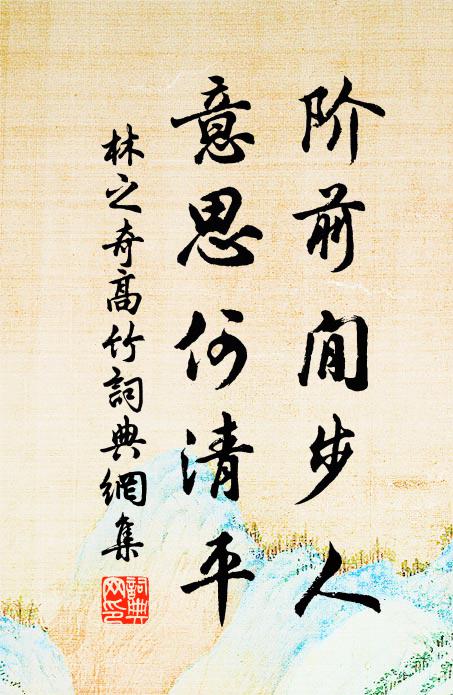 阶前闲步人
意思何清平
林之奇高竹詞典網集
詞典网印